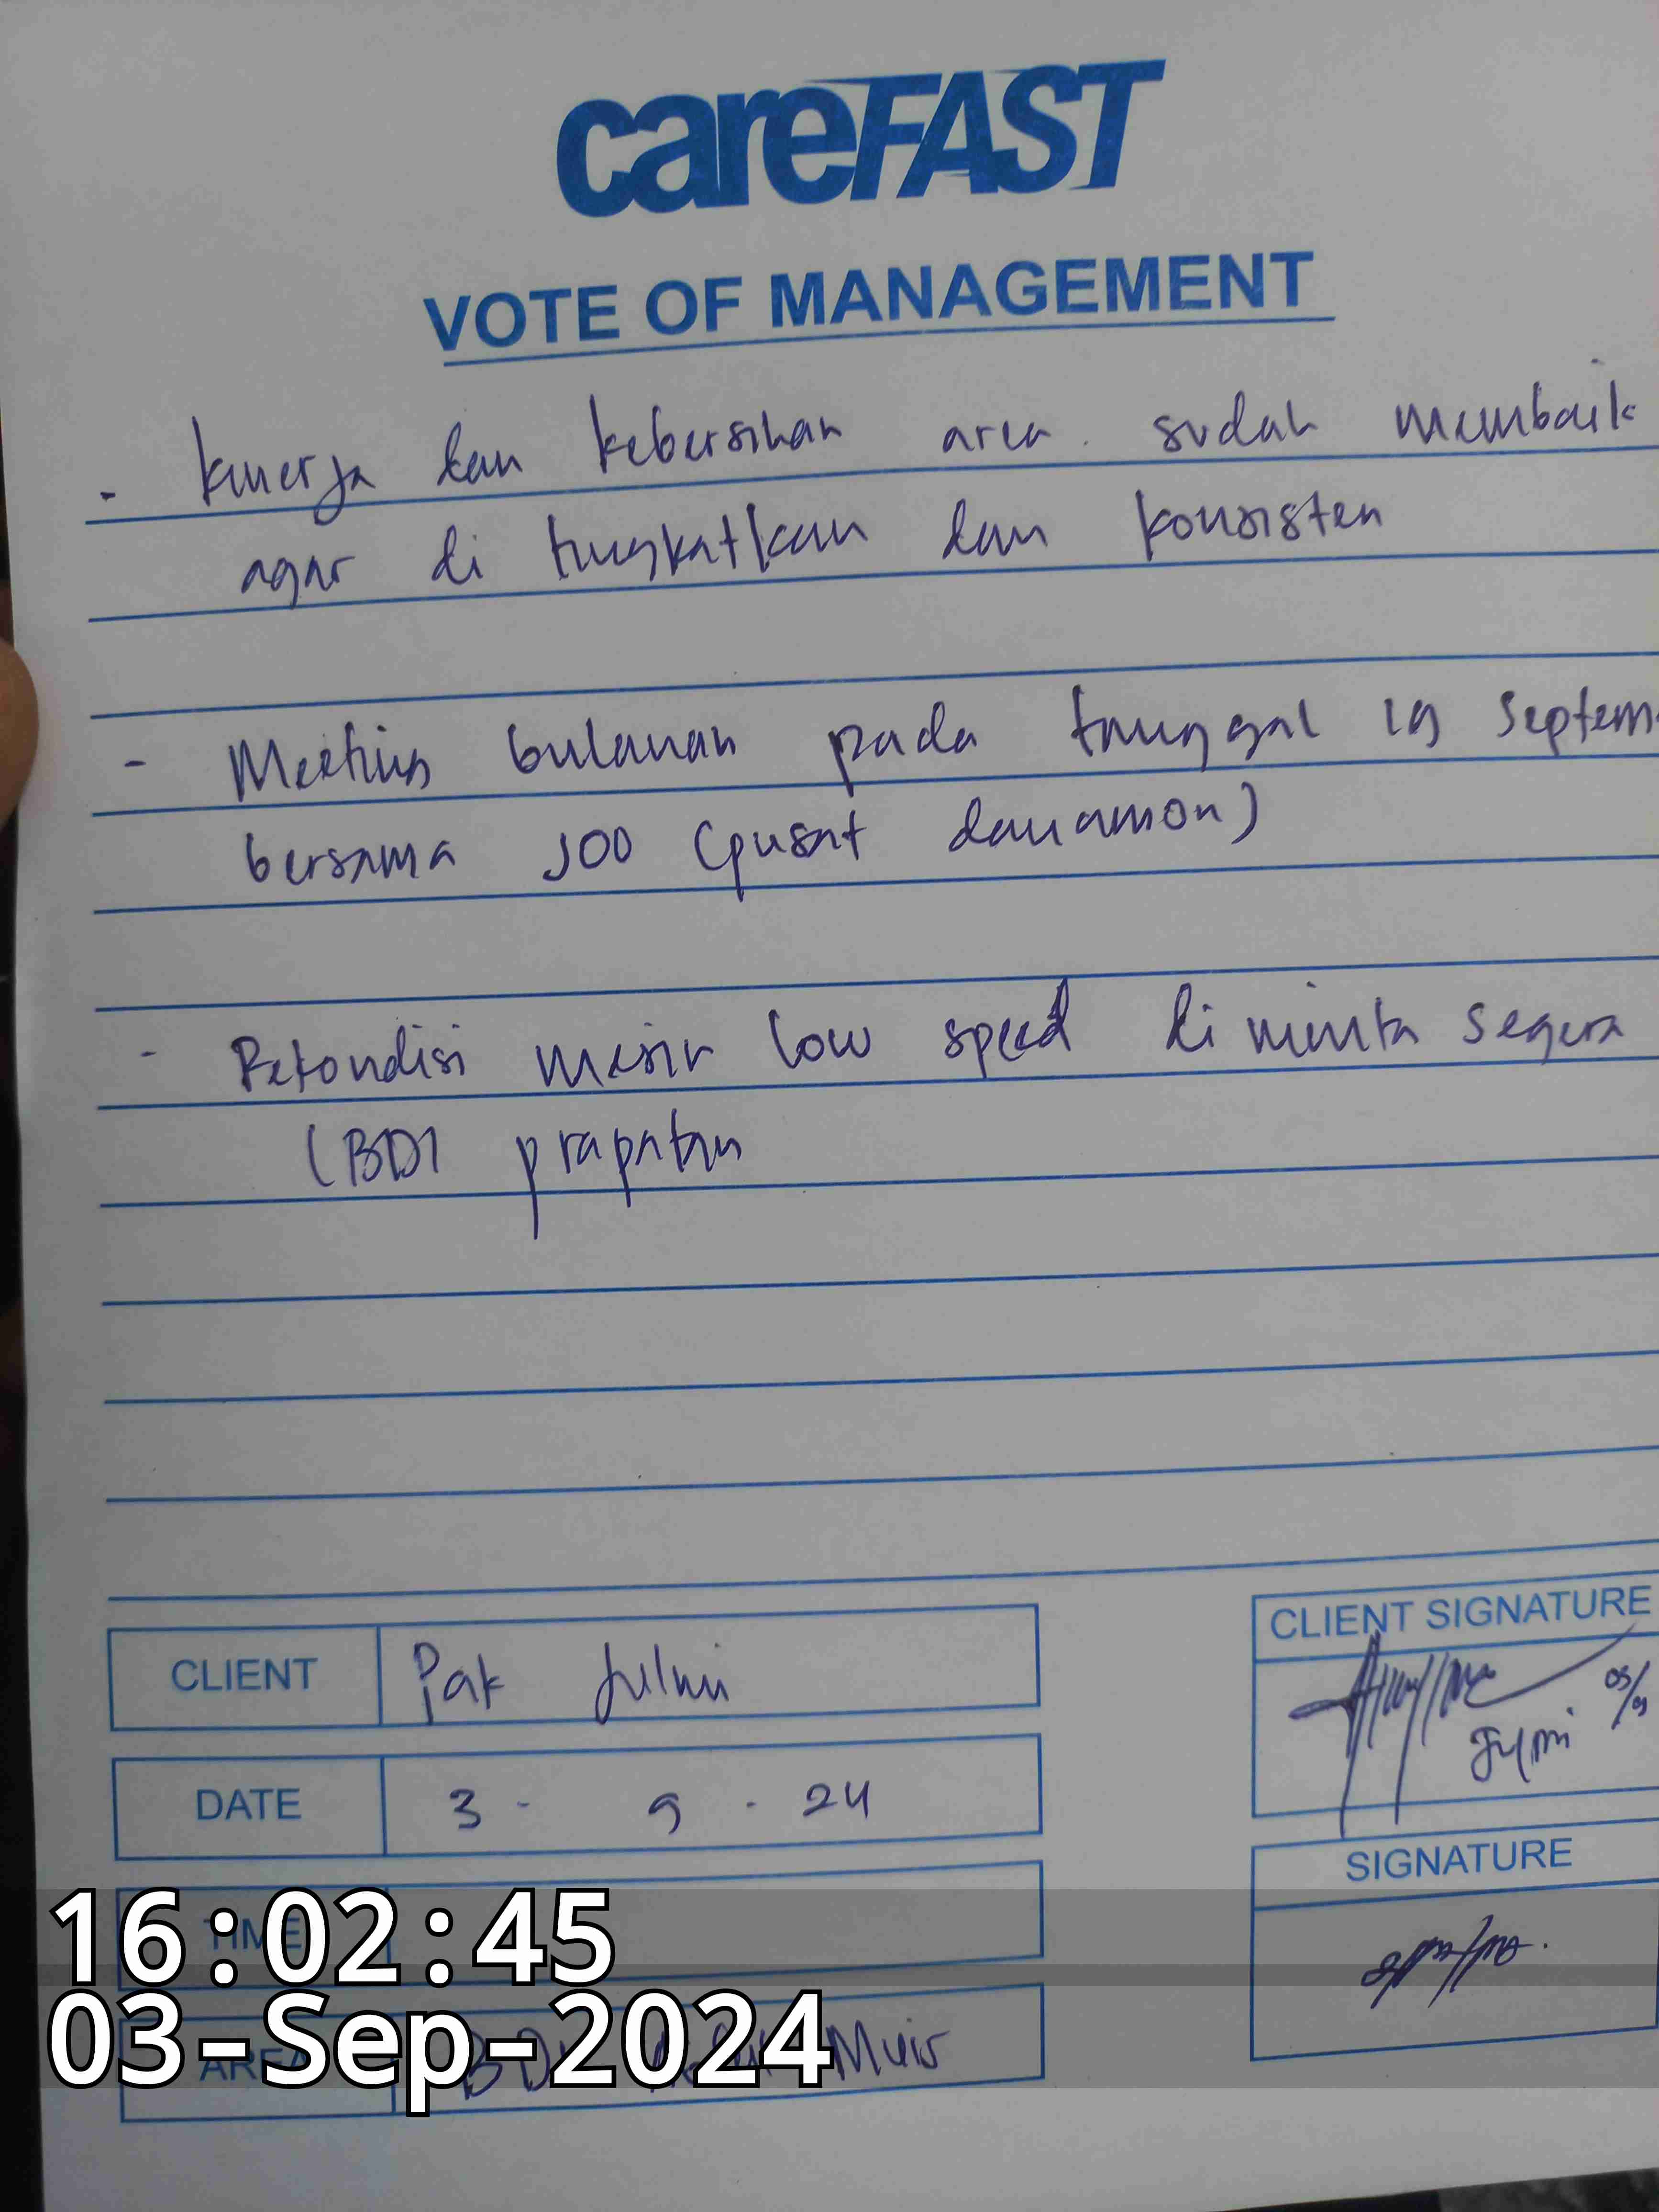 careFAST
VOTE OF MANAGEMENT
- kinerja dan kebersihan area sudah membaik
agar di tingkatkan dan konsisten
- Meeting bulanan pada tanggal 19 Septem
bersama JOO (pusat danamon)
- Rekondisi mesin low speed di minta segera
(BDI prapatan
CLIENT Pak Julmi
CLIENT SIGNATURE
Julmi 03/9
DATE 3 - 9 - 24
SIGNATURE
TIME
16:02:45
03-Sep-2024
AREA BDI Muis